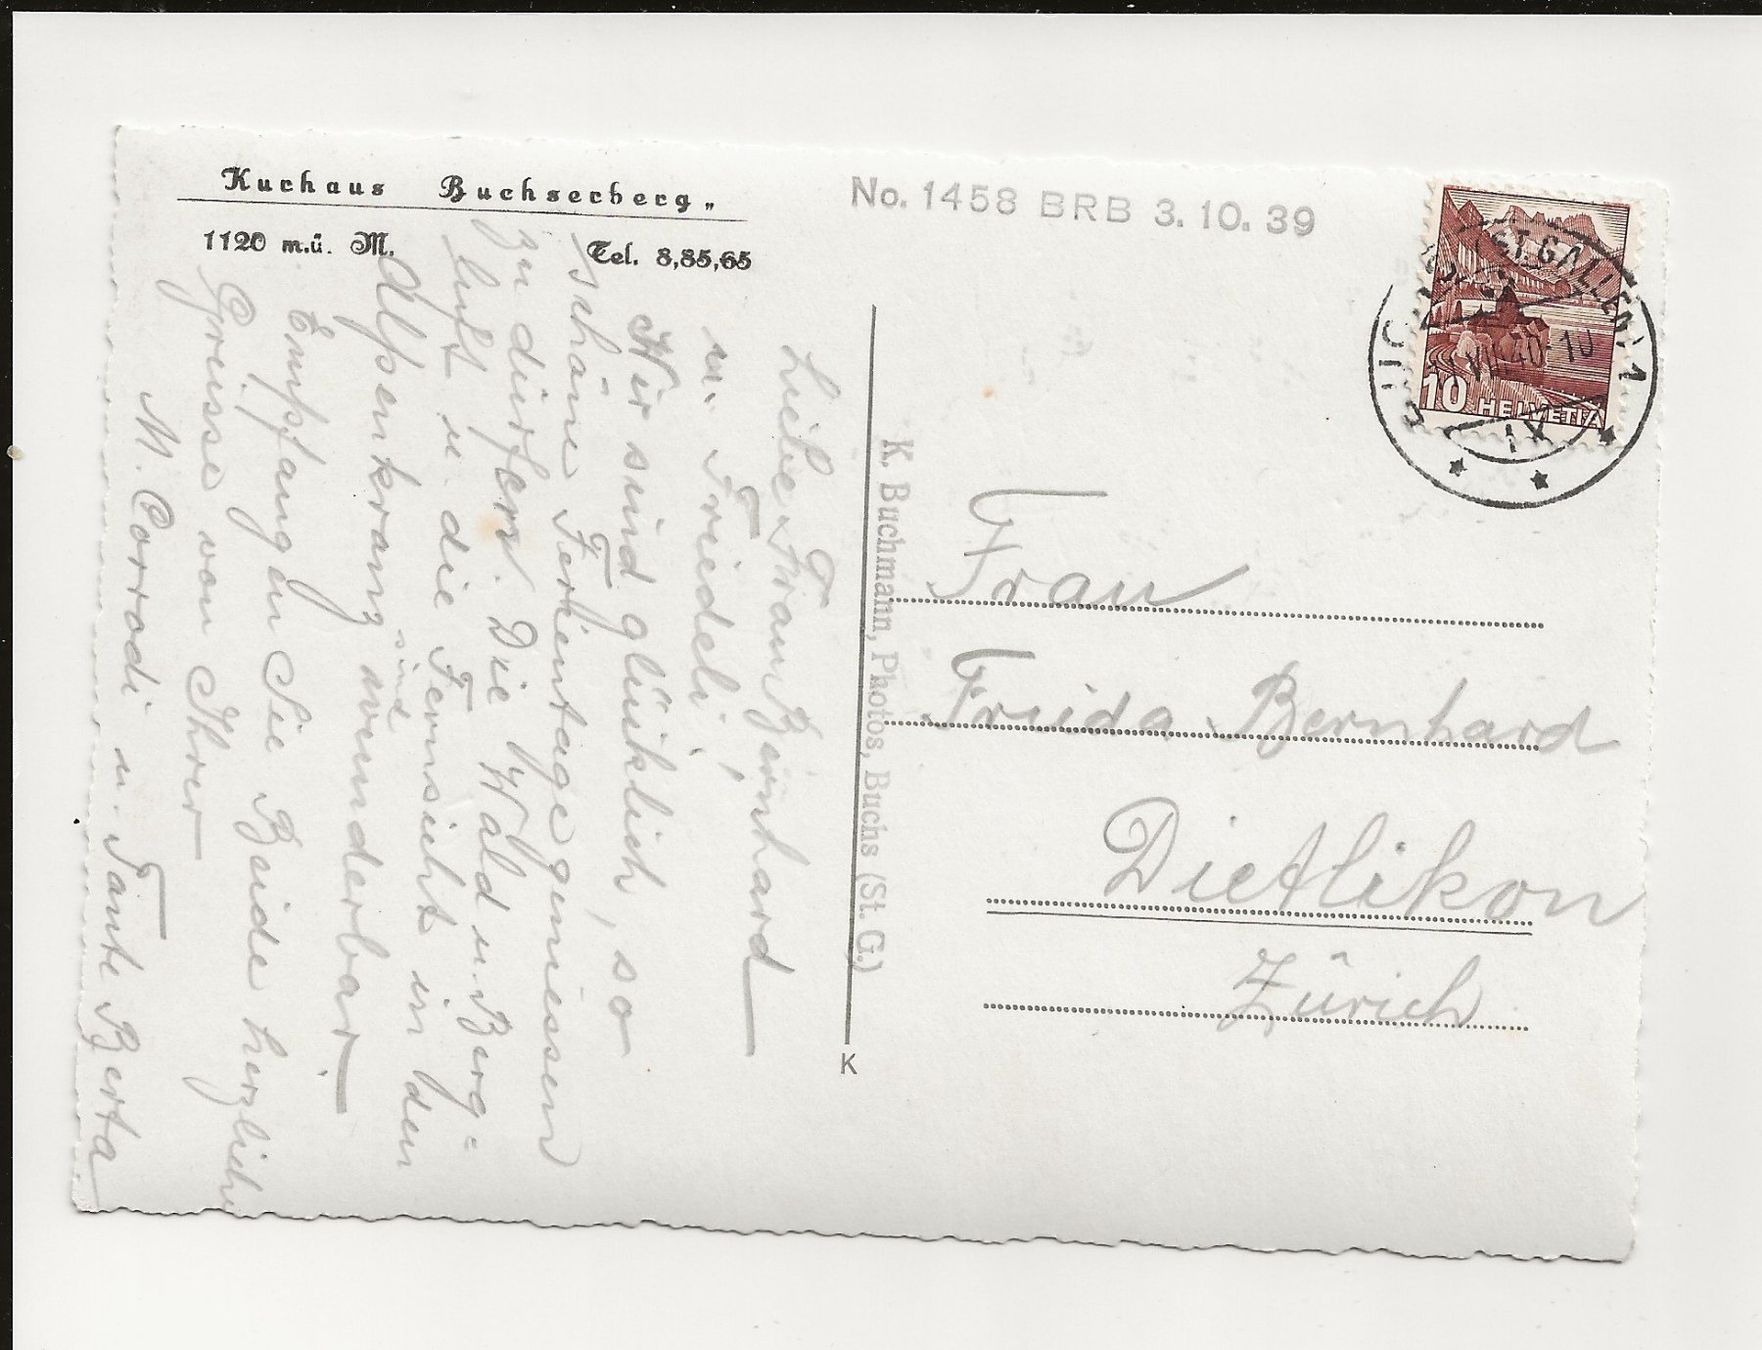 Kurhaus Buchserberg „
1120 m.ü. M. Tel. 8,85,65
No. 1458 BRB 3. 10. 39
(ST. GALLEN) 1
VIII.40-10
IX
10 HELVETIA
Liebe Frau Bernhard
u. Friedeli,
Wir sind glücklich, so
schöne Ferientage geniessen
zu dürfen. Die Wald u. Berg-
luft u. die Fernsicht in den
Alpenkranz sind wunderbar.
Empfangen Sie Beide herzliche
Grüsse von Ihrer
M. Corrodi u. Tante Berta
K. Buchmann, Photos, Buchs (St. G.)
K
Frau
Frieda Bernhard
Dietlikon
Zürich